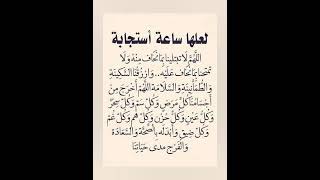 لعلها ساعة أستجابة
اللَّهُمَّ لَا تَبْتَلِينَا بِمَا نَخَافُ مِنْهُ وَلَا
تَمْتَحِنَا بِمَا نَخَافُ عَلَيْهِ.. وَارْزُقْنَا السَّكِينَةِ
وَالطُّمَأْنِينَةِ وَالسَّلَامَةِ اللَّهُمَّ أَخْرِجْ مِنْ
أَجْسَامِنَا كُلِّ مَرَضٍ وَكُلِّ سَمٍ وَكُلِّ سِحْرٍ
وَكُلِّ عَيْنٍ وَكُلِّ حُزْنٍ وَكُلِّ هَمٍ وَكُلِّ غَمٍّ
وَكُلِّ ضِيقٍ وَأَبْدِلْه بِالصِّحَّةِ وَالسَّعَادَةِ
وَالْفَرَجِ مَدَى حَيَاتِنَا